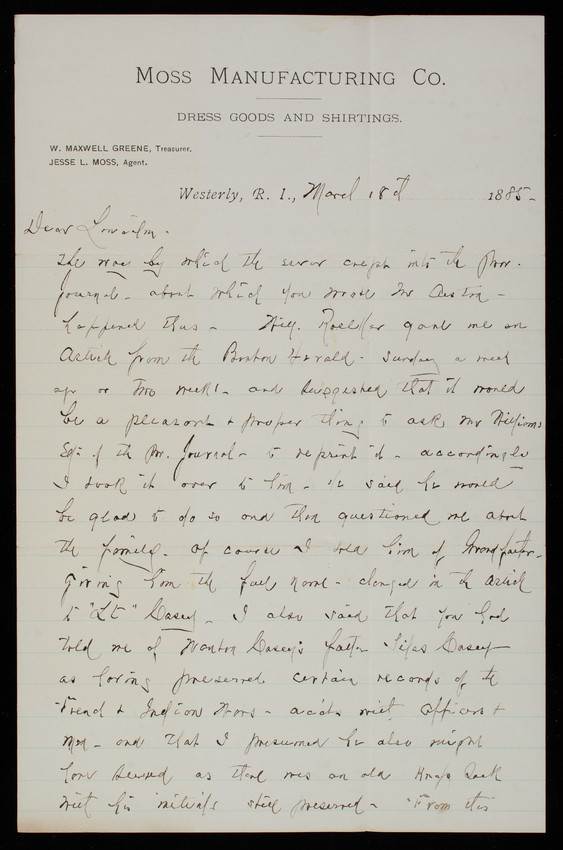 MOSS MANUFACTURING CO.
DRESS GOODS AND SHIRTINGS.
W. MAXWELL GREENE, Treasurer.
JESSE L. MOSS, Agent.
Westerly, R. I., March 18th 1885-
Dear
The way by which the error crept into the Prov.
Journal - about which you wrote Mr
happened thus - gave me an
Article from the Boston Herald - Sunday a week
ago or two weeks - and suggested that it would
be a pleasant & proper thing to ask Mr Williams
Edr. of the Pr. Journal - to reprint it - accordingly
I took it over to him - he said he would
be glad to do so and then questioned me about
the family. Of course I told him of Grandfather -
giving him the full name - changed in the article
to "Lt" Casey - I also said that you had
told me of Wanton Casey's father Silas Casey
as having preserved certain records of the
French & Indian Wars - with Officers &
Men - and that I presumed he also might
have served as there was an old Knap Sack
with his initials still preserved - "From this